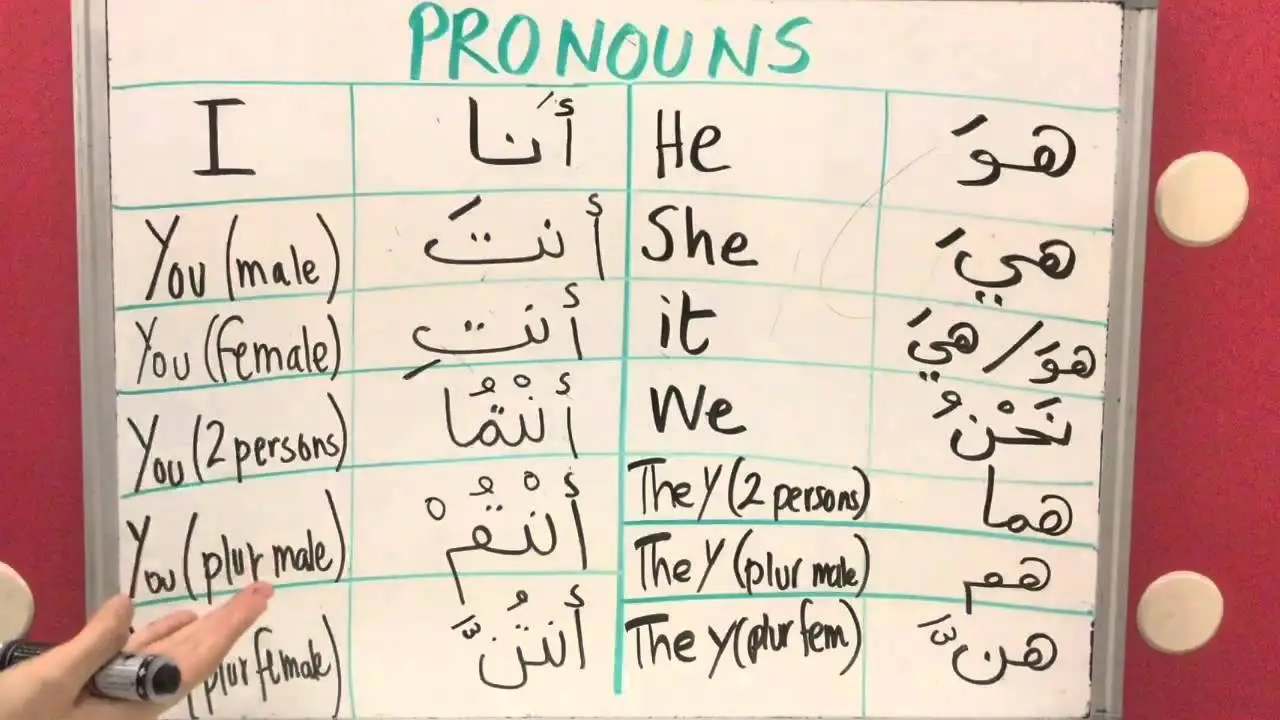 PRONOUNS
I أَنا He هوَ
You (male) أنتَ She هيَ
You (female) أنتِ it هوَ / هيَ
You (2 persons) أنْتُما We نَحْنُ
You (plur male) أنْتُمْ They (2 persons) هما
(plur female) أنتُنَّ They (plur male) هم
They (plur fem) هنَّ